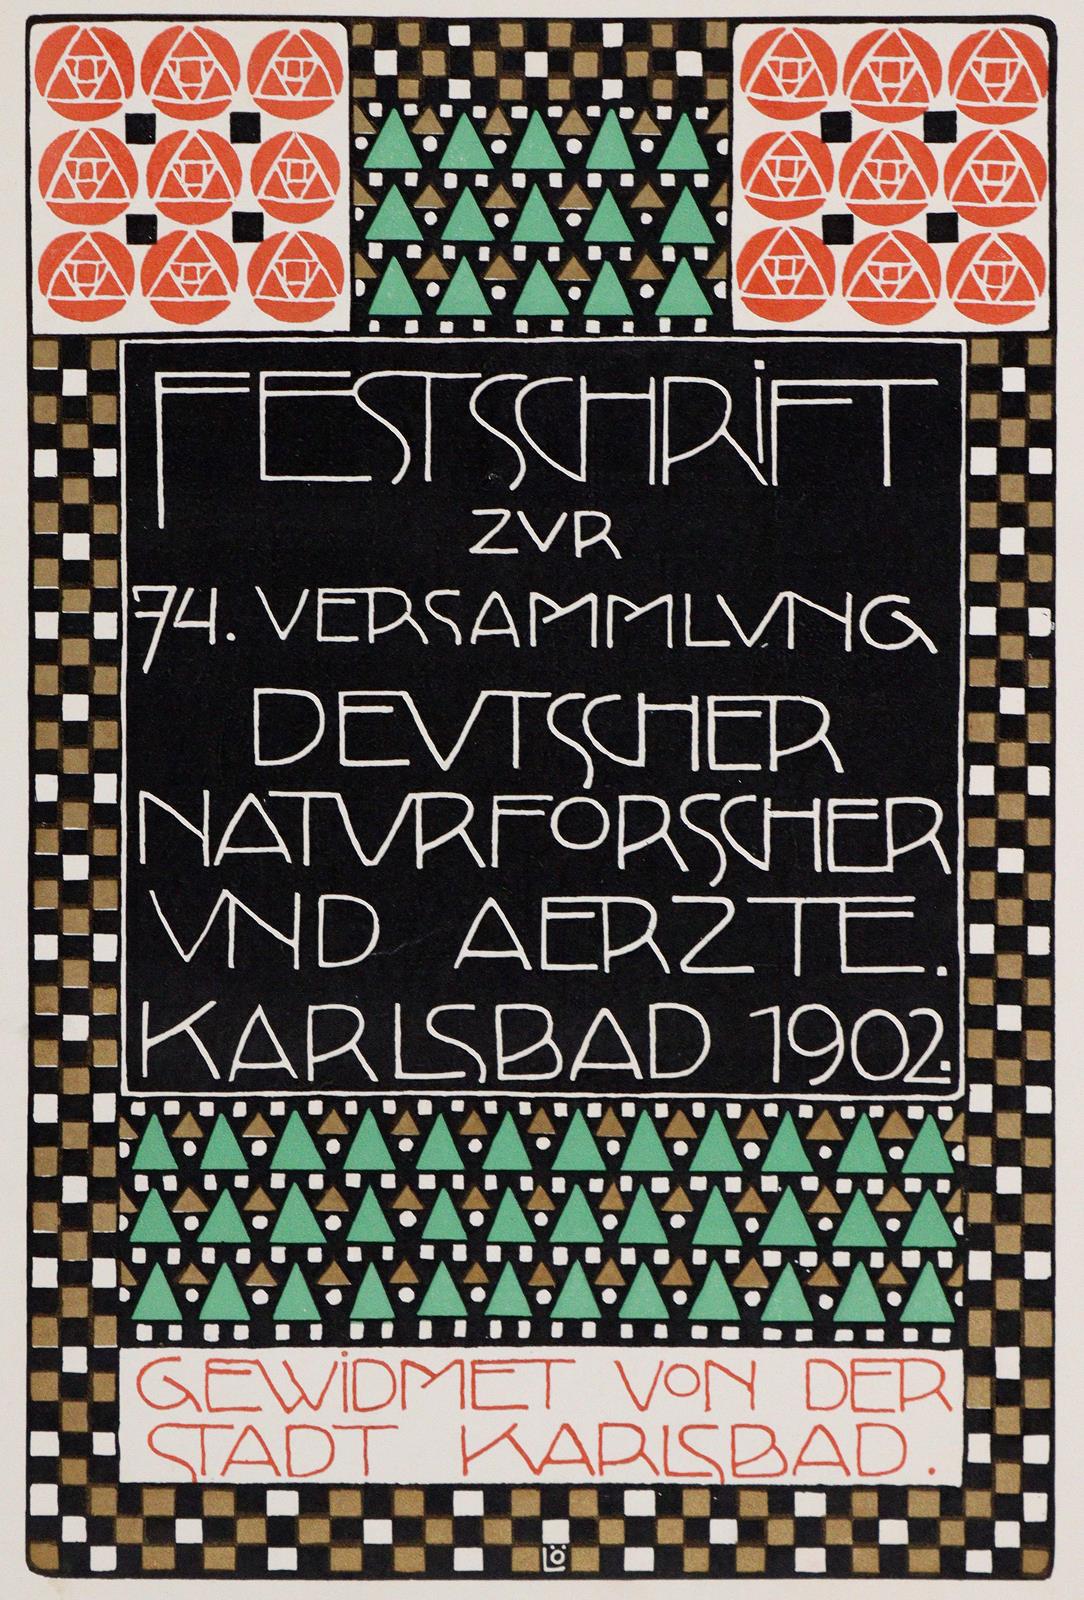 FESTSCHRiFT
ZVR
74. VERSAMMLVNG
DEVTSCHER
NATVRFORSCHER
VND AERZTE.
KARLSBAD 1902.
GEWiDMET VON DER
STADT KARLSBAD.
LÖ